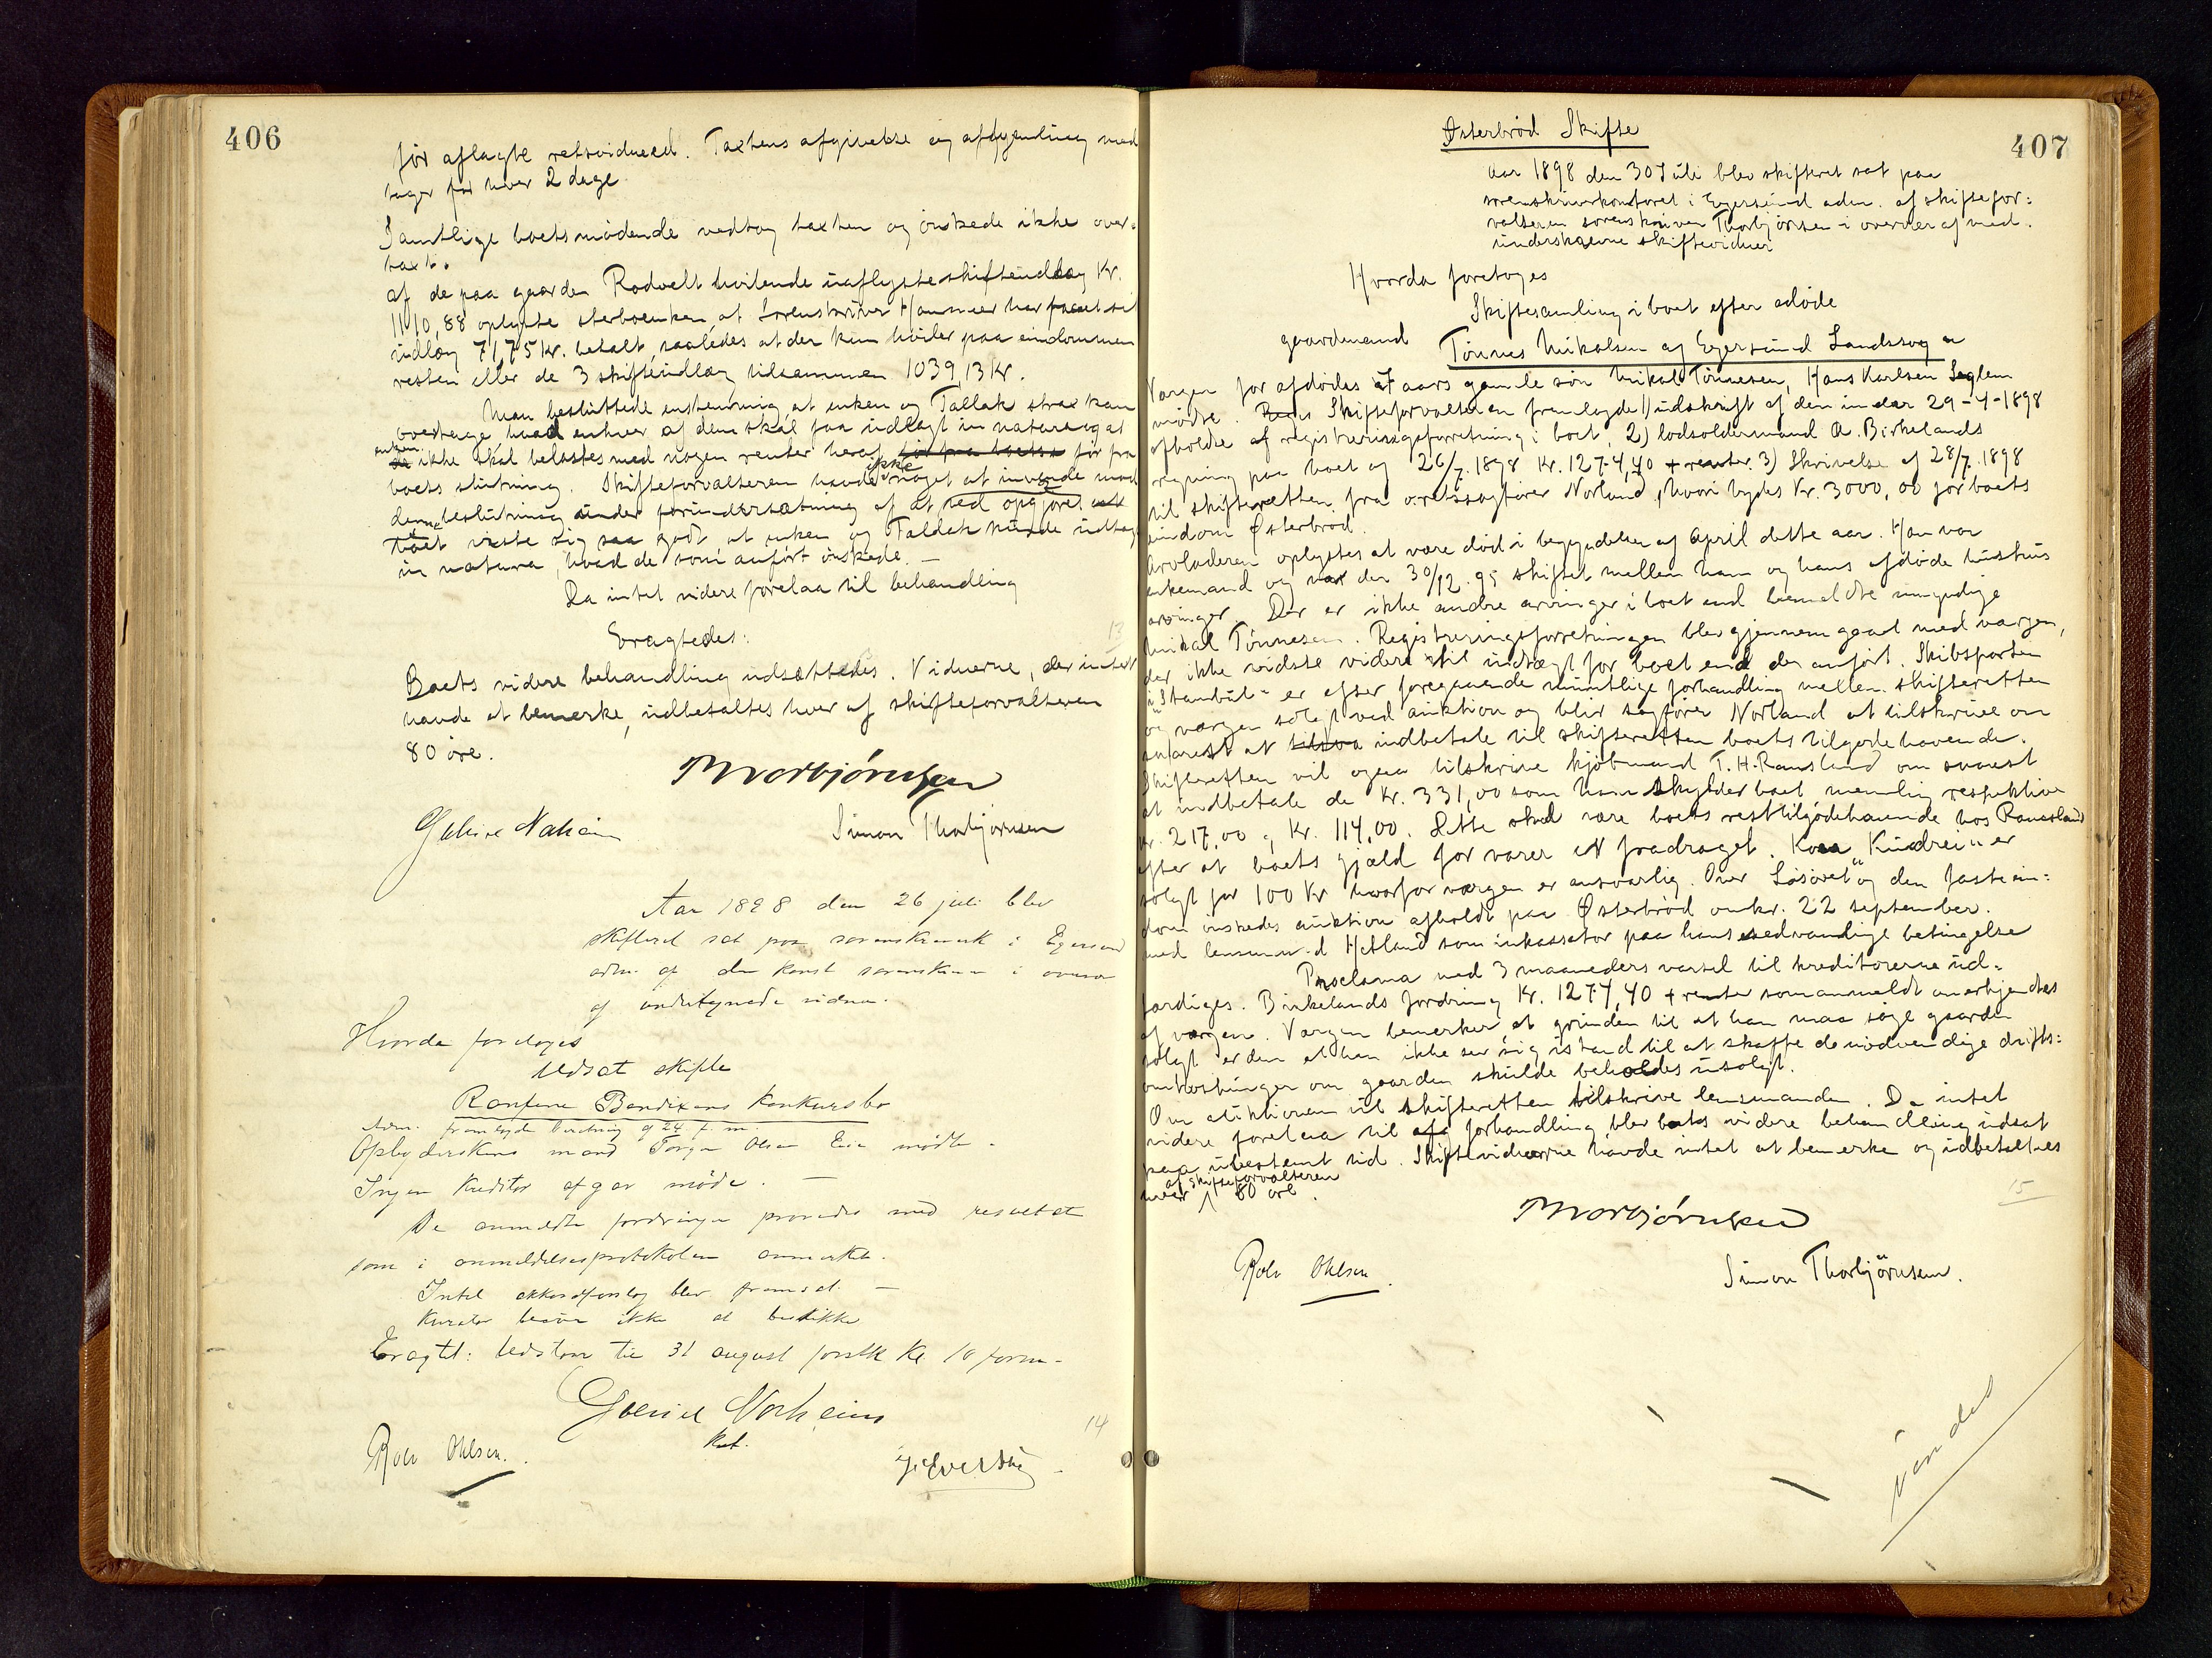 406
før aflagte retsvidneed. Taxtens afgivelse og afhjemling med
tager for hver 2 dage
Samtlige boets mødende vedtog taxten og ønskede ikke over-
taxt.
af de paa gaarden Rodvelt hvilende uaflyste skifteudlæg Kr.
1110,88 oplyste sterboenken at Sorenskriver har faaet sit
udlæg 71,75 Kr. betalt, saaledes at der kun hviler paa eindommen
resten eller de 3 skifteudlæg tilsammen 1039,13 Kr.
Man besluttede enstemmig at enken og Tallak strax kan
overtage, hvad enhver af dem skal faa udlagt in natura og at
enken ikke skal belastes med nogen renter heraf før fra
boets slutning. Skifteforvalteren havde ikke noget at invende mod
denne beslutning under forudsætning af at ved opgjøret
boet viste sig saa godt at enken og Taldak kunde udtage
in natura, hvad de som anført ønskede. —
Da intet videre forelaa til behandling
Eragtedes:
13
Boets videre behandling udsættedes. Vidnerne, der intet
havde at bemerke, udbetaltes hver af skifteforvalteren
80 øre.
Thorbjørnsen
Simon Thorbjørnsen
Aar 1898 den 26 juli blev
skifteret sat paa sorenskriverk i Egersund
adm. af den konst sorenskriver i overvær
af undertegnede vidner.
Hvorda foretoges
Udsat skifte
Bendixens konkursbo
Adm. fremlagde beretning af 24 f. m.
Opbyderskens mand Torger Olsen Eie mødte -
Ingen kreditor afgav møde. —
De anmeldte fordringer prøvedes med resultat
som i anmeldelsesprotokolen anmerket.
Intet akkordforslag blev fremsat —
Kurator besøv ikke at beskikke
Eragtet: Udstaar til 31 august førstk Kl 10 form-
Kst.
14
Rolv Ohlsen.
407
Østerbrød Skifte
Aar 1898 den 30 Juli blev skifteret sat paa
sorenskriverkontoret i Egersund adm. af skiftefor-
valteren sorenskriver Thorbjørnsen i overvær af med-
underskrevne skiftevidner
Hvorda foretoges
Skiftesamling i boet efter afdøde
gaardmand Tønnes Mikalsen af Egersund Landssogn
Værgen for afdødes 17 aars gamle søn Mikal Tønnesen, Hans Karlsen Seglem
mødte. Skifteforvalteren fremlagde 1) udskrift af den under 29-4-1898
afholdte af registreringsforretning i boet, 2) lodsoldermand A. Birkelands
regning paa boet af 26/7. 1898 Kr. 1274,40 + renter. 3) Skrivelse af 28/7. 1898
til skifteretten fra o.retssagfører Norland, hvori bydes Kr. 3000,00 for boets
eindom Østerbrød.
Arvladeren oplystes at være død i begyndelsen af April dette aar. Han var
enkemand og var der 30/12. 95 skiftet mellem ham og hans afdøde hustrus
arvinger. Der er ikke andre arvinger i boet end bemeldte umyndige
Mikal Tønnesen. Registreringsforretningen blev gjennemgaaet med værgen,
der ikke vidste videre til indtægt for boet end der anført. Skibsparten
i "Stambul" er efter foregaaende mundtlige forhandling mellem skifteretten
og værgen solgt ved auktion og blir sagfører Norland at tilskrive om
snarest at indbetale til skifteretten boets tilgodehavende.
Skifteretten vil ogsaa tilskrive kjøbmand T. H. Ramsland om snarest
at indbetale de Kr. 331,00 som han skylder boet nemlig respektive
Kr. 217,00 og Kr. 114,00. Dette skal være boets resttilgodehavende hos Ramsland
efter at boets gjæld for varer er fradraget. Koen "Kudrei" er
solgt for 100 Kr hvorfor værgen er ansvarlig. Over Løsøret og den faste ein-
dom ønskedes auktion afholdt paa Østerbrød omkr. 22 september.
med lensmand Hetland som inkassator paa hans sedvandlige betingelse
Proclama med 3 maaneders varsel til kreditorerne ud-
færdiges. Birkelands fordring Kr. 1274,40 + renter som anmeldt anerkjendtes
af værgen. Værgen bemerker at grunden til at han maa søge gaarden
solgt er den at han ikke ser sig istand til at skaffe de nødvendige drifts-
omkostninger om gaarden skulde beholdes usolgt.
Om auktionen vil skifteretten tilskrive lensmanden. Da intet
videre forelaa til forhandling blev boets videre behandling udsat
paa ubestemt tid. Skiftevidnerne havde intet at bemerke og udbetaltes
hver af skifteforvalteren 80 øre.
15
Thorbjørnsen
Rolv Ohlsen.
Simon Thorbjørnsen.